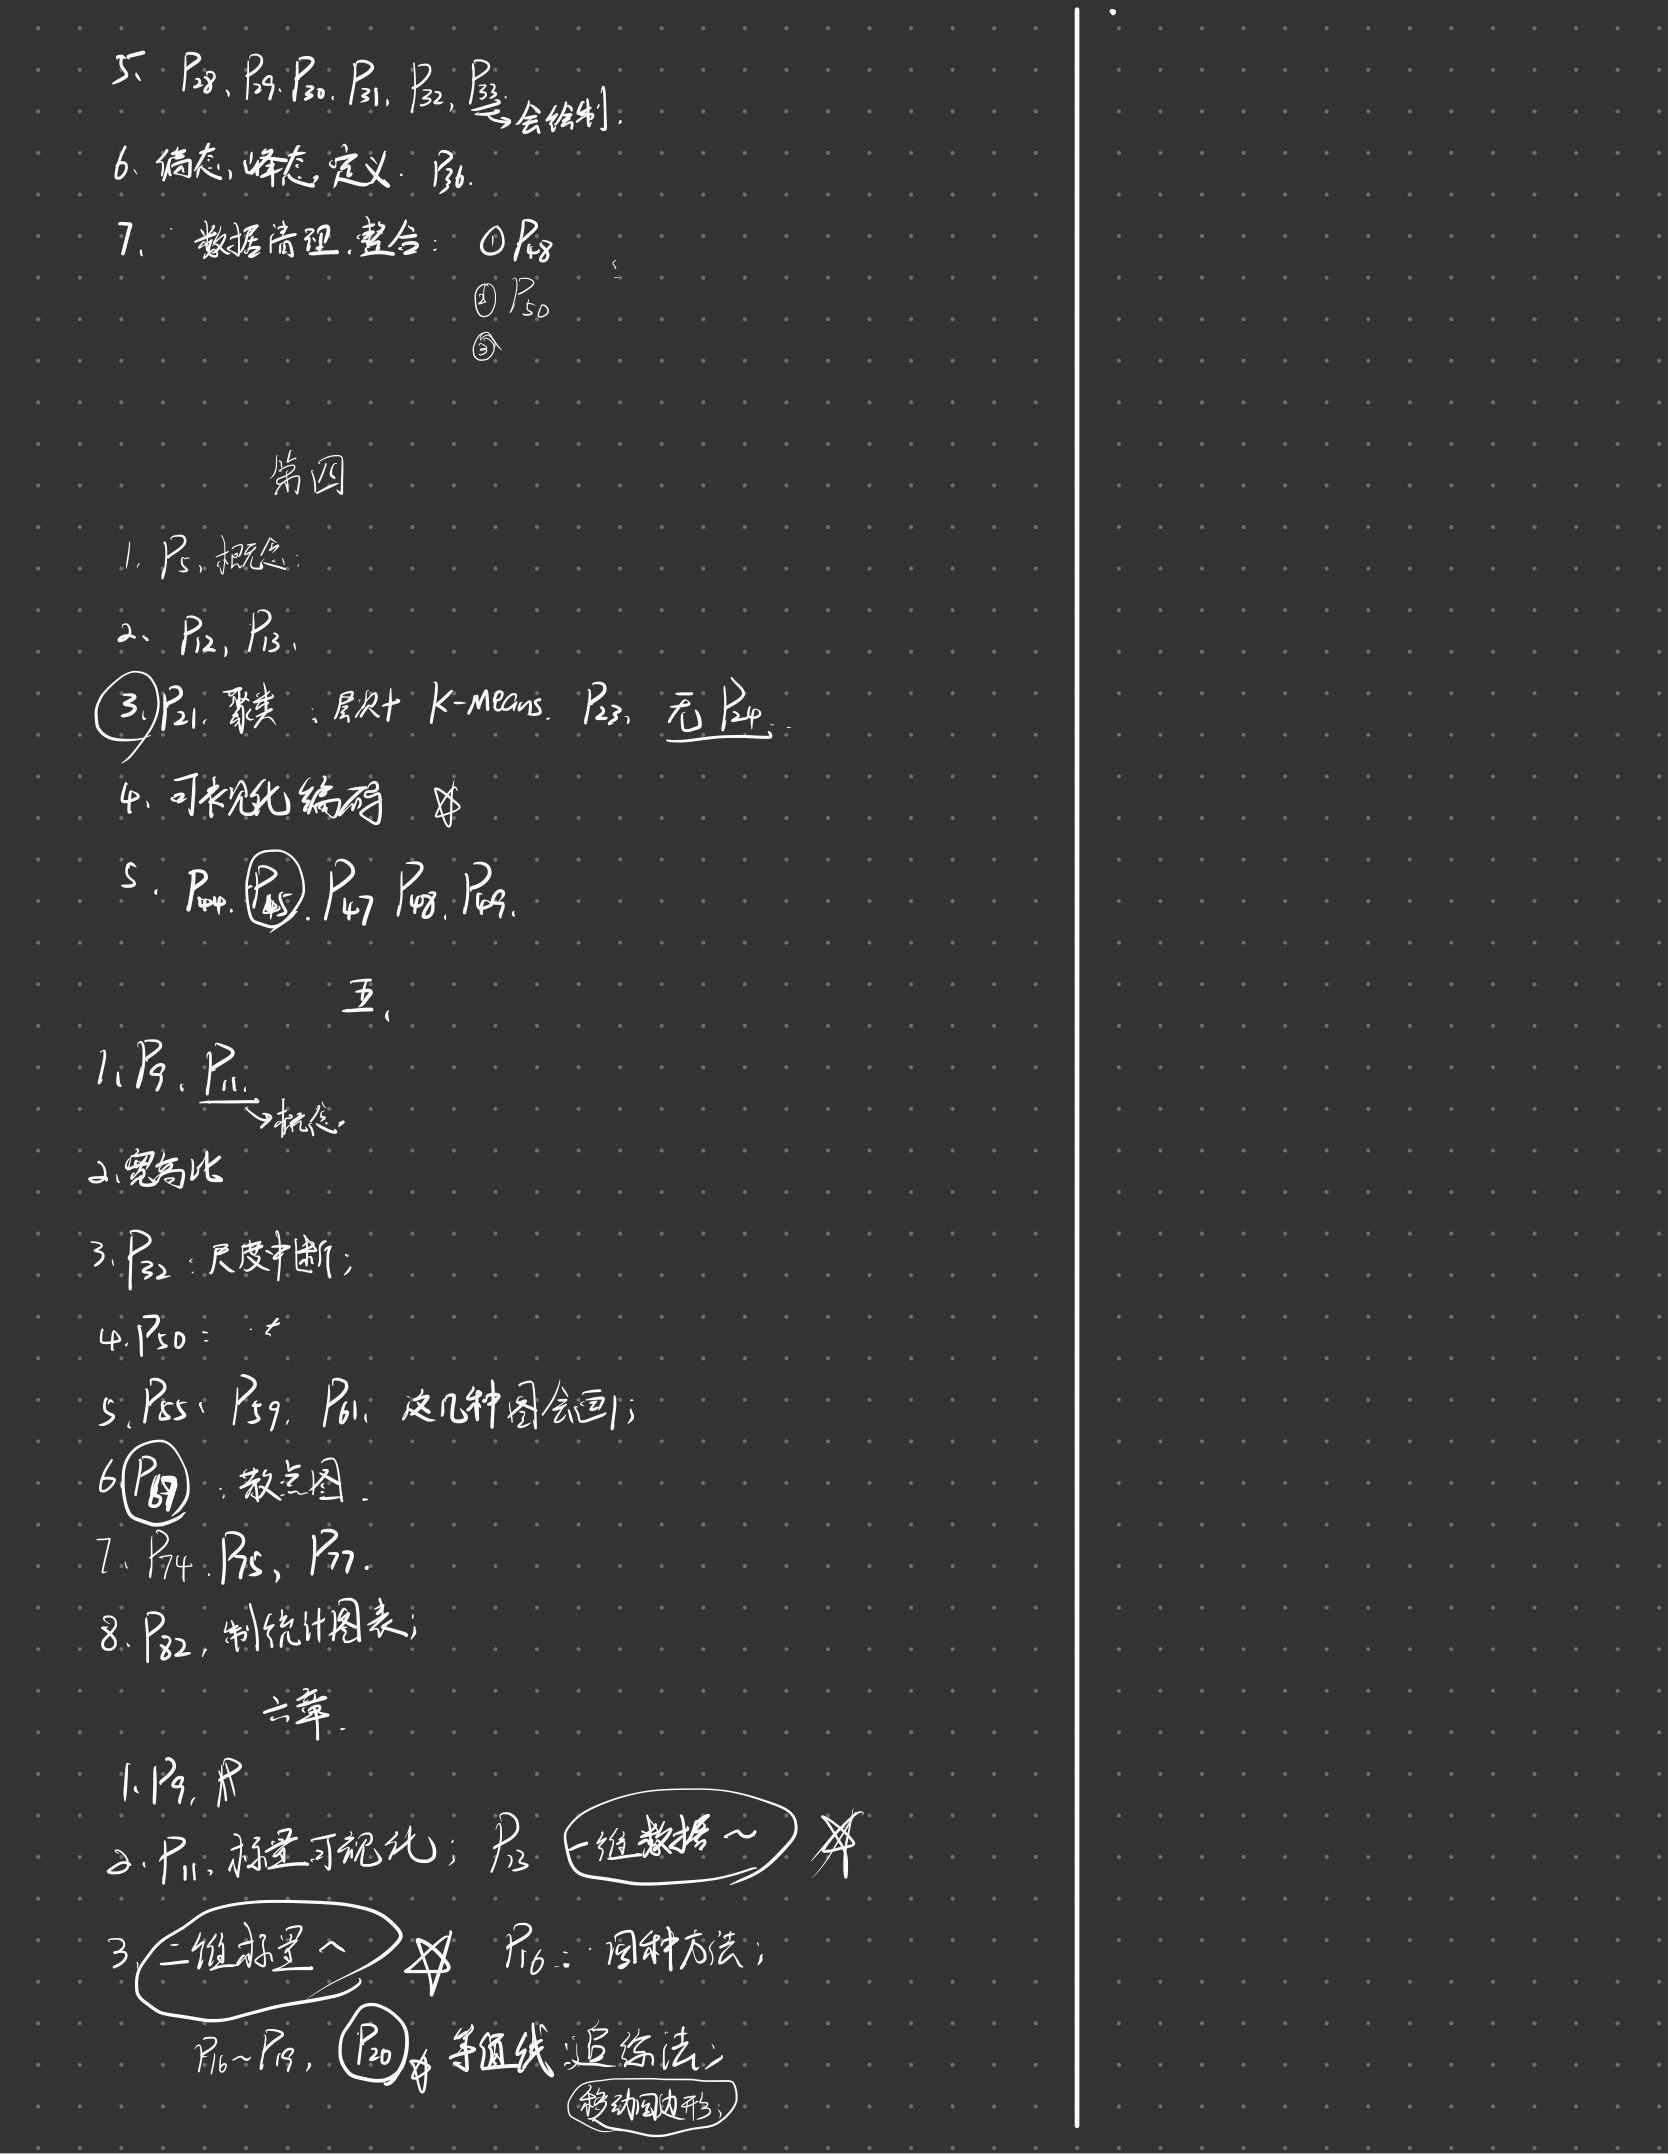 5、P28、P29、P30、P31、P32、P33.
→会绘制.
6、偏态,峰态,定义. P36.
7、数据清理.整合: ①P48
②P50
③
第四
1. P5、概念:
2、P12, P13、
3、P21、聚类:层次+K-Means. P23, 无P24.
4、可视化编码 ☆
5. P44. P45. P47 P48. P49.
五、
1、P9、P11.
→概念.
2、宽高比
3、P32:尺度中断;
4. P50:
5、P55、P59, P61、这几种图会画;
6 P67:散点图.
7、P74. P75、P77.
8、P82,制统计图表;
六章.
1、P9,
2、P11、标量可视化; P13 一维数据~ ☆
3、二维标量~ ☆ P16:四种方法;
P16~P19, P20 ☆ 等值线追踪法;
移动四边形;